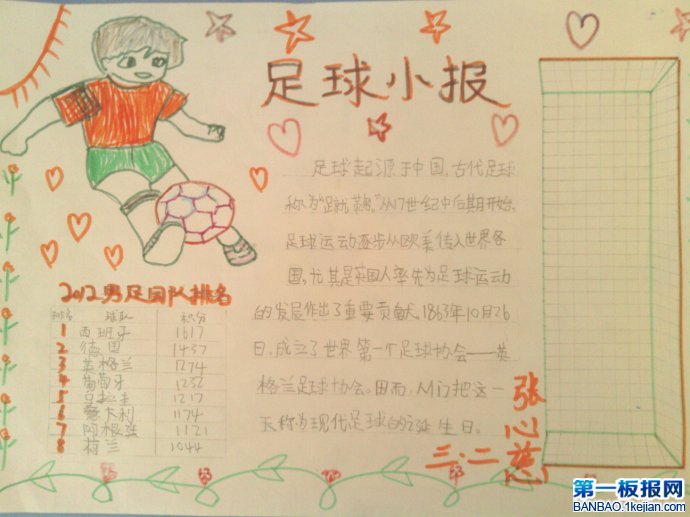 足球小报
足球起源于中国,古代足球
称为"蹴鞠"。从17世纪中后期开始,
足球运动逐步从欧美传入世界各
国,尤其是英国人率先为足球运动
的发展作出了重要贡献。1863年10月26
日,成立了世界第一个足球协会——英
格兰足球协会。因而,人们把这一
天称为现代足球的诞生日。
张心慈
三.二
2012男足国队排名
排名 球队 积分
1 西班牙 1617
2 德国 1437
3 英格兰 1274
4 葡萄牙 1232
5 乌拉圭 1217
6 意大利 1174
7 阿根廷 1121
8 荷兰 1044
第一板报网
BANBAO.1kejian.com